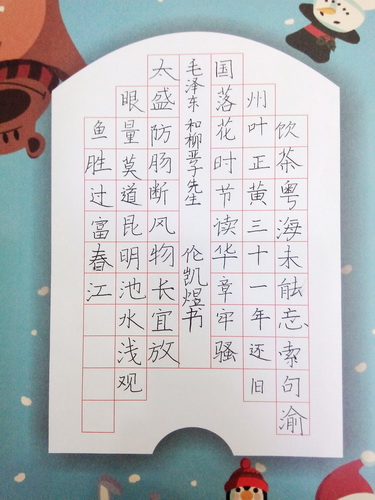 饮茶粤海未能忘索句渝
州叶正黄三十一年还旧
国落花时节读华章牢骚
毛泽东 和柳亚子先生 伦凯煜书
太盛防肠断风物长宜放
眼量莫道昆明池水浅观
鱼胜过富春江